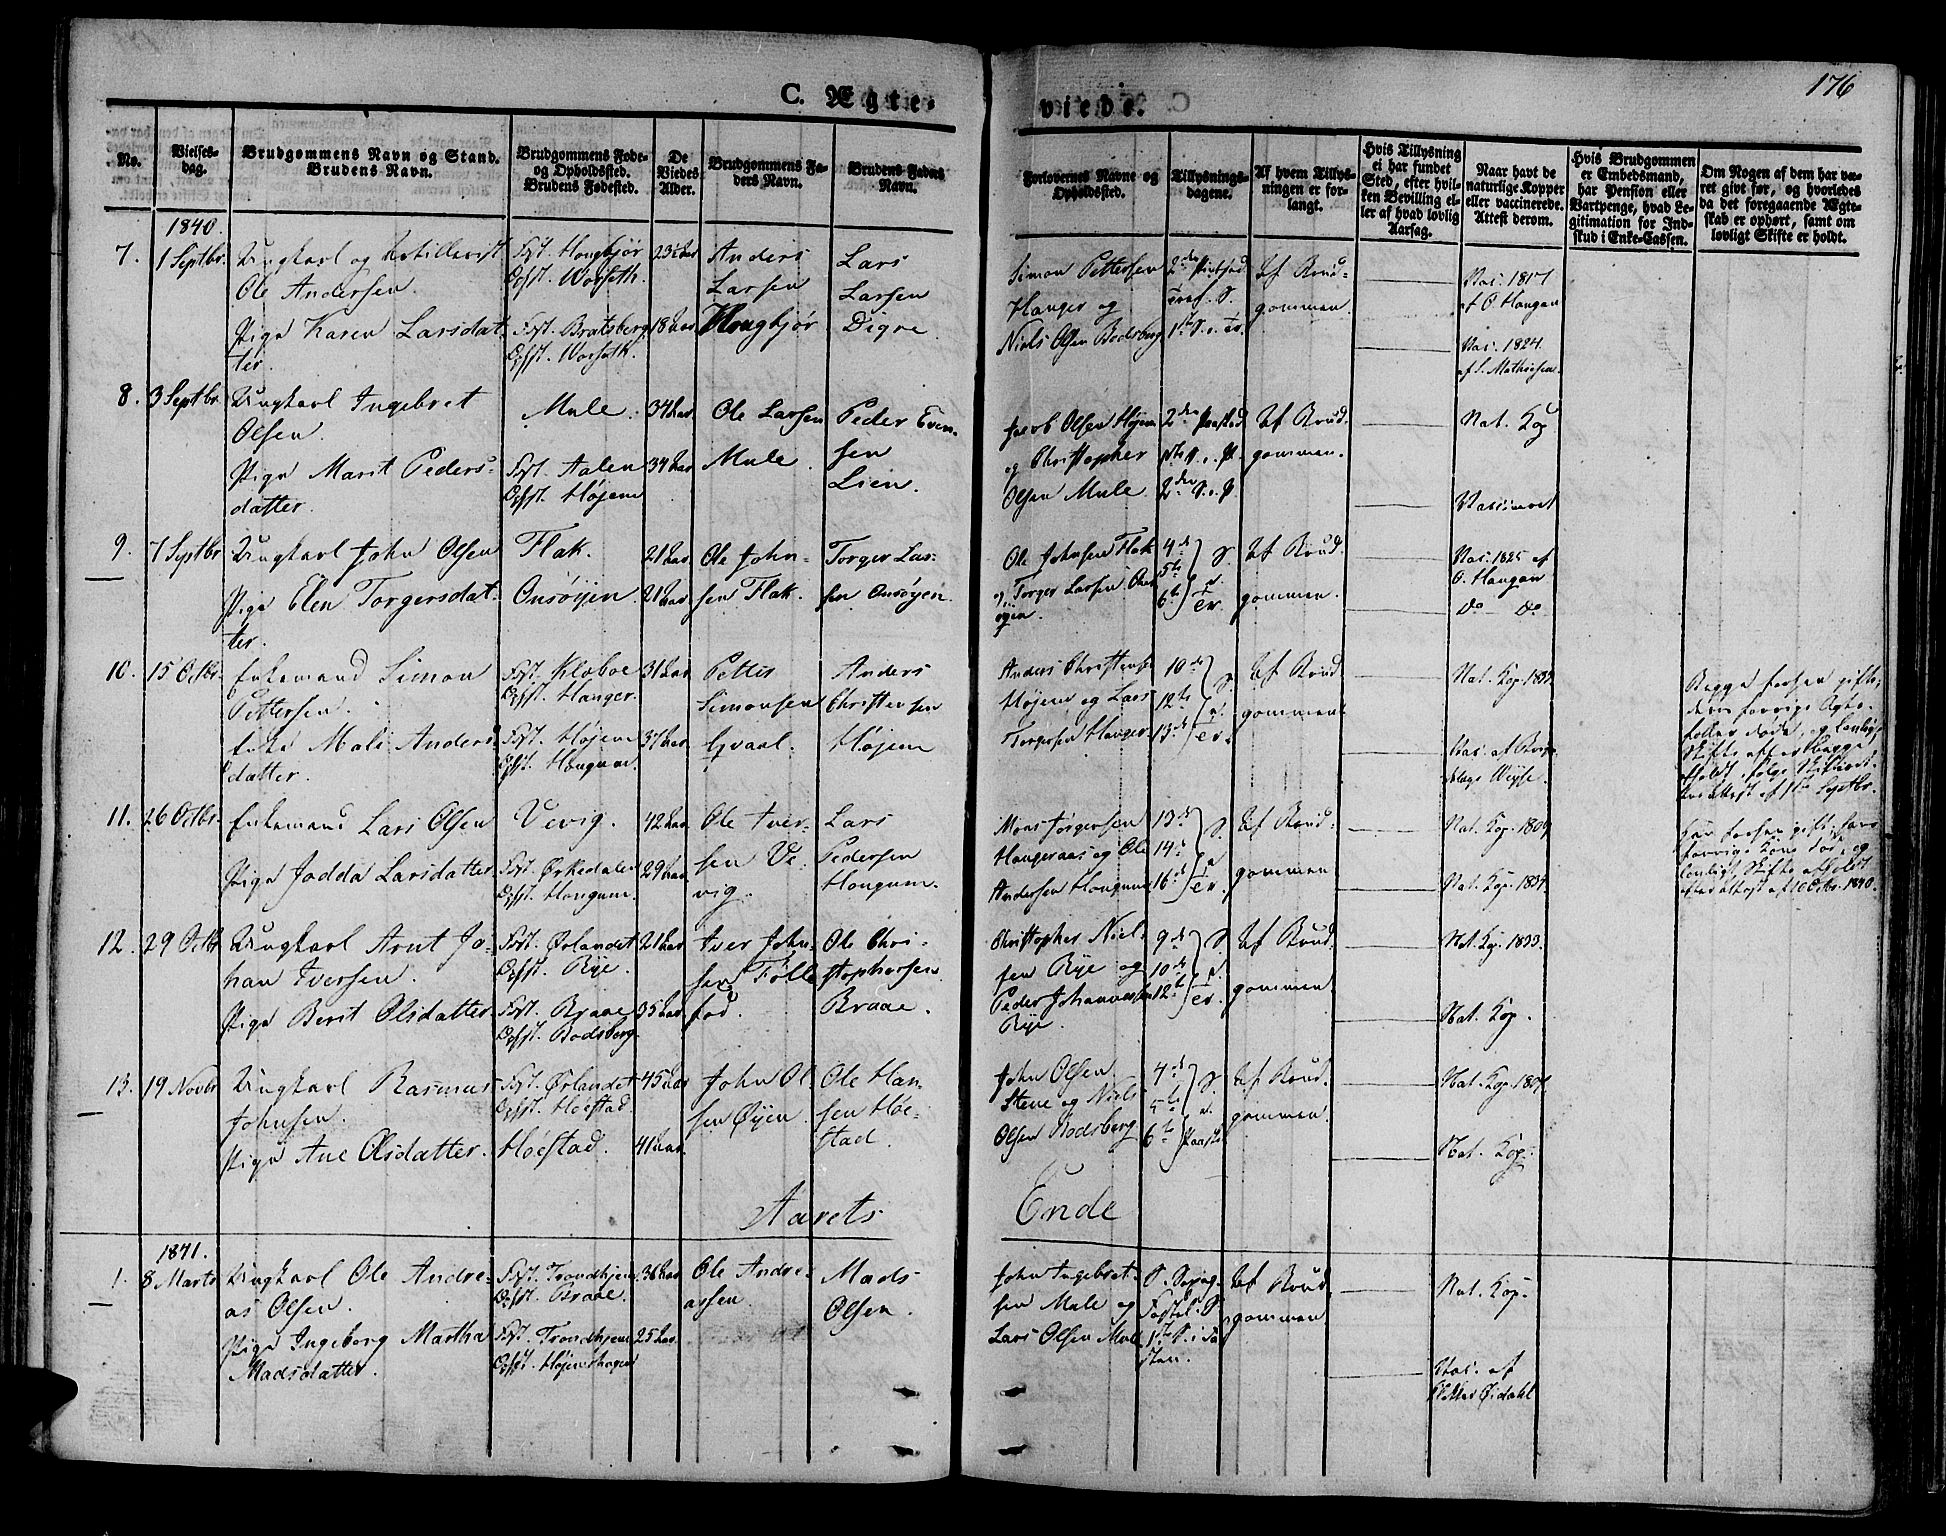 176
C. Ægte-
viede.
No.
Vielses-
dag.
Brudgommens Navn og Stand.
Brudens Navn.
Brudgommens Føde-
og Opholdssted.
Brudens Fødested.
De
Viedes
Alder.
Brudgommens Fa-
ders Navn.
Brudens Faders
Navn.
Forlovernes Navne og
Opholdssted.
Tillysnings-
dagene.
Af hvem Tillys-
ningen er for-
langt.
Hvis Tillysning
ei har fundet
Sted, efter hvil-
ken Bevilling el-
ler af hvad lovlig
Aarsag.
Naar havt de
naturlige Kopper
eller vaccinerede.
Attest derom.
Hvis Brudgommen
er Embedsmand,
har Pension eller
Vartpenge, hvad Le-
gitimation for Ind-
skud i Enke-Cassen.
Om Nogen af dem har væ-
ret givt før, og hvorledes
da det foregaaende Ægte-
skab er ophørt, samt om
lovligt Skifte er holdt.
1840.
7. 1 Septbr.
Ungkarl og Artillerist
Ole Andersen.
Pige Karen Larsdat-
ter.
Fst. Hougbjør
Opst. Worseth.
Fst. Bratsberg
Opst. Worseth.
18 Aar
Anders
Larsen
Hougbjør
Lars
Larsen
Digre
Simon Pettersen
Hanger og
Niels Olsen Bodsberg
Af Brud-
gommen.
Vac. 1817
af O. Haugan
Vac. 1824.
af L. Mathiesen
8. 3 Septbr
Ungkarl Ingebret
Olsen.
Pige Marit Peders-
datter.
Mule.
Fst. Aalen
Opst. Højem
34 Aar
34 Aar
Ole Larsen
Mule.
Peder Even-
sen
Lien.
Olsen Højem
og Christopher
Olsen Mule
Af Brud-
gommen.
Nat. Kop
Vaccineret
9. 7 Septbr
Ungkarl John Olsen
Pige Elen Torgersdat-
ter.
Flak.
Onsöyen
21 Aar
21 Aar
Ole John-
sen Flak.
Torger Lar-
sen Onsöyen
Ole Johnsen Flak
og Torger Larsen Ons-
øyen.
4de
5te
6te
S. e. Tr.
Af Brud-
gommen.
Vac. 1825 af
O. Haugan
Do Do
10. 15 Octbr.
Enkemand Simon
Pettersen.
Enke Mali Anders-
datter.
Fst. Klæboe
Opst. Hanger.
Fst. Højem
Opst. Hougum.
31 Aar
37 Aar
Petter
Simonsen
Gvaal.
Anders
Christensen
Højem
Anders Christensen
Højem og Lars
Torgersen Hanger
10de
12te
13de
S. e. Tr.
Af Brud-
gommen
Weyse.
Begge forhen gifte,
11. 26 Octbr.
Enkemand Lars Olsen
Pige Jodda Larsdatter
Vevig.
Fst. Ørkedalen
Opst. Hougum.
42 Aar
29 Aar
Ole Iver-
sen Ve-
vig.
Lars
Pedersen
Hougum.
Mons Jørgensen
Hangeraas og Ole
Andersen Hougum
13de
14de
16de
S. e. Tr.
Af Brud-
gommen
Nat. Kop. 1809
Nat. Kop. 1834.
12. 29 Octbr
Ungkarl Arnt Jo-
han Iversen.
Pige Berit Olsdatter.
Fst. Ørlandet
Opst. Rye.
Fst. Braae
Opst. Bodsberg.
21 Aar
35 Aar
Iver John-
sen Fölle-
fod.
Ole Chri-
stophersen
Braae.
Christopher Niel-
sen Rye og
Peder Johannesen
Rye.
9de
10de
12te
S. e. Tr.
Af Brud-
gommen.
Nat. Kop. 1833.
Nat. Kop.
13. 19 Novbr
Ungkarl Rasmus
Johnsen.
Pige Ane Olsdatter.
Fst. Ørlandet
Opst. Høestad.
Høestad.
45 Aar
41 Aar
John Ol-
sen Øyen.
Ole Han-
sen Høe-
stad.
John Olsen
Stene og Niels
Olsen Bodsberg
4de
5te
6te
Af Brud-
gommen.
Nat. Kop. 1807.
Nat. Kop.
Aarets Ende
1841.
1. 8 Marts
Ungkarl Ole Andre-
as Olsen.
Pige Ingeborg Martha
Madsdatter.
Fst. Trondhjem
Opst. Braae.
Fst. Trondhjem
36 Aar
25 Aar
Ole Andre-
assen.
Mads
Olsen.
John Ingebret-
sen Mule og
Lars Olsen Mule
Af Brud-
gommen
Nat. Kop.
Vac. af
Petter Øidahl